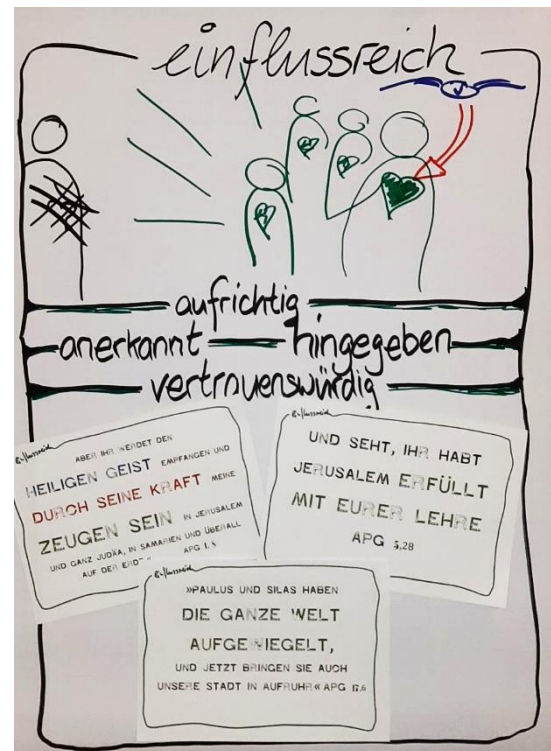 einflussreich
aufrichtig
anerkannt hingegeben
vertrauenswürdig
einflussreich
ABER IHR WERDET DEN
HEILIGEN GEIST EMPFANGEN UND
DURCH SEINE KRAFT MEINE
ZEUGEN SEIN IN JERUSALEM
UND GANZ JUDÄA, IN SAMARIEN UND ÜBERALL
AUF DER ERDE APG 1,8
einflussreich
UND SEHT, IHR HABT
JERUSALEM ERFÜLLT
MIT EURER LEHRE
APG 5,28
einflussreich
»PAULUS UND SILAS HABEN
DIE GANZE WELT
AUFGEWIEGELT,
UND JETZT BRINGEN SIE AUCH
UNSERE STADT IN AUFRUHR« APG 17,6